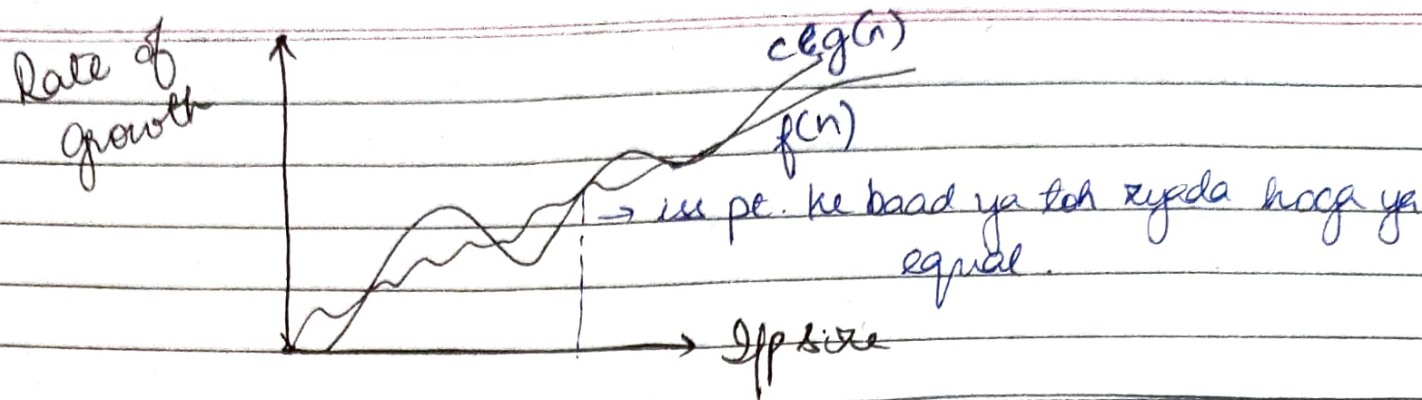 Rate of
growth
c g(n)
f(n)
→ iss pt. ke baad ya toh zyada hoga ya
equal.
I/p size